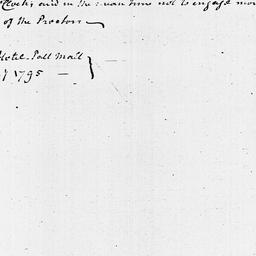 Clock; and in the mean time not to engage mor
of the Proctors
Hotel Pall Mall
y 1795